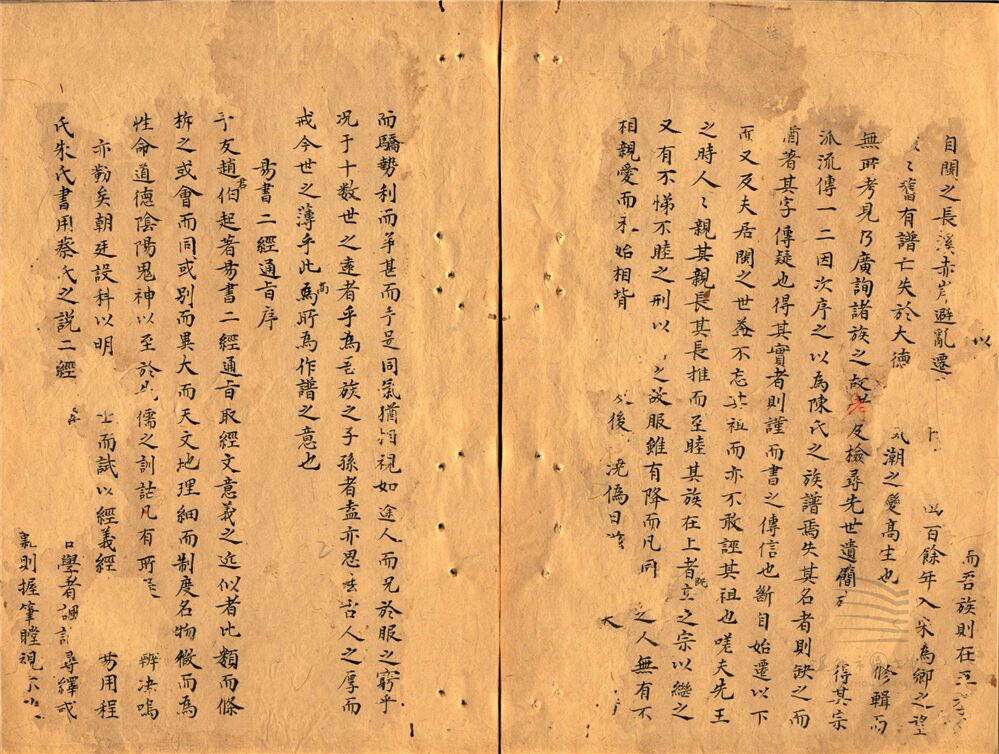 自閩之長溪赤岸避亂遷 以 而吾族則在
舊有譜亡失於大德 百餘年入宋為鄉之望
無所考見乃廣詢諸族之故老及檢尋先世遺 潮之變高生也 修輯而
派流傳一二因次序之以為陳氏之族譜焉失其名者則缺之而 得其宗
著其字傳疑也得其實者則謹而書之傳信也斷自始遷以下
而又及夫居閩之世葢不忘其祖而亦不敢誣其祖也嗟夫先王
之時人〻親其親長其長推而至睦其族在上者既立之宗以繼之
又有不悌不睦之刑以 之故服雖有降而凡同 之人無有不
相親愛而 始相背 後 澆偽日 大
而驕勢利而爭甚而于是同氣猶相視如途人而况於服之窮乎
况于十数世之遠者乎為吾族之子孫者盍亦思 古人之厚而
戒今世之薄乎此高所為作譜之意也
易書二經通旨序
予友趙伯 起著易書二經通旨取經文意義之近似者比類而條
拆之或會而同或别而異大而天文地理細而制度名物微而為
性命道德陰陽鬼神以至於 儒之訓詁凡有所 辨决嗚
亦勤矣朝廷設科以明 士而試以經義經 易用程
氏朱氏書用蔡氏之說二經 學者 尋繹或
則握筆瞠視